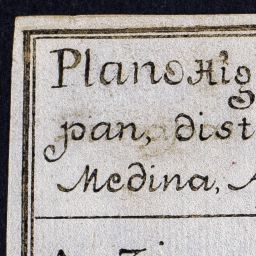 Plano Hig
pan, dist
Medina,